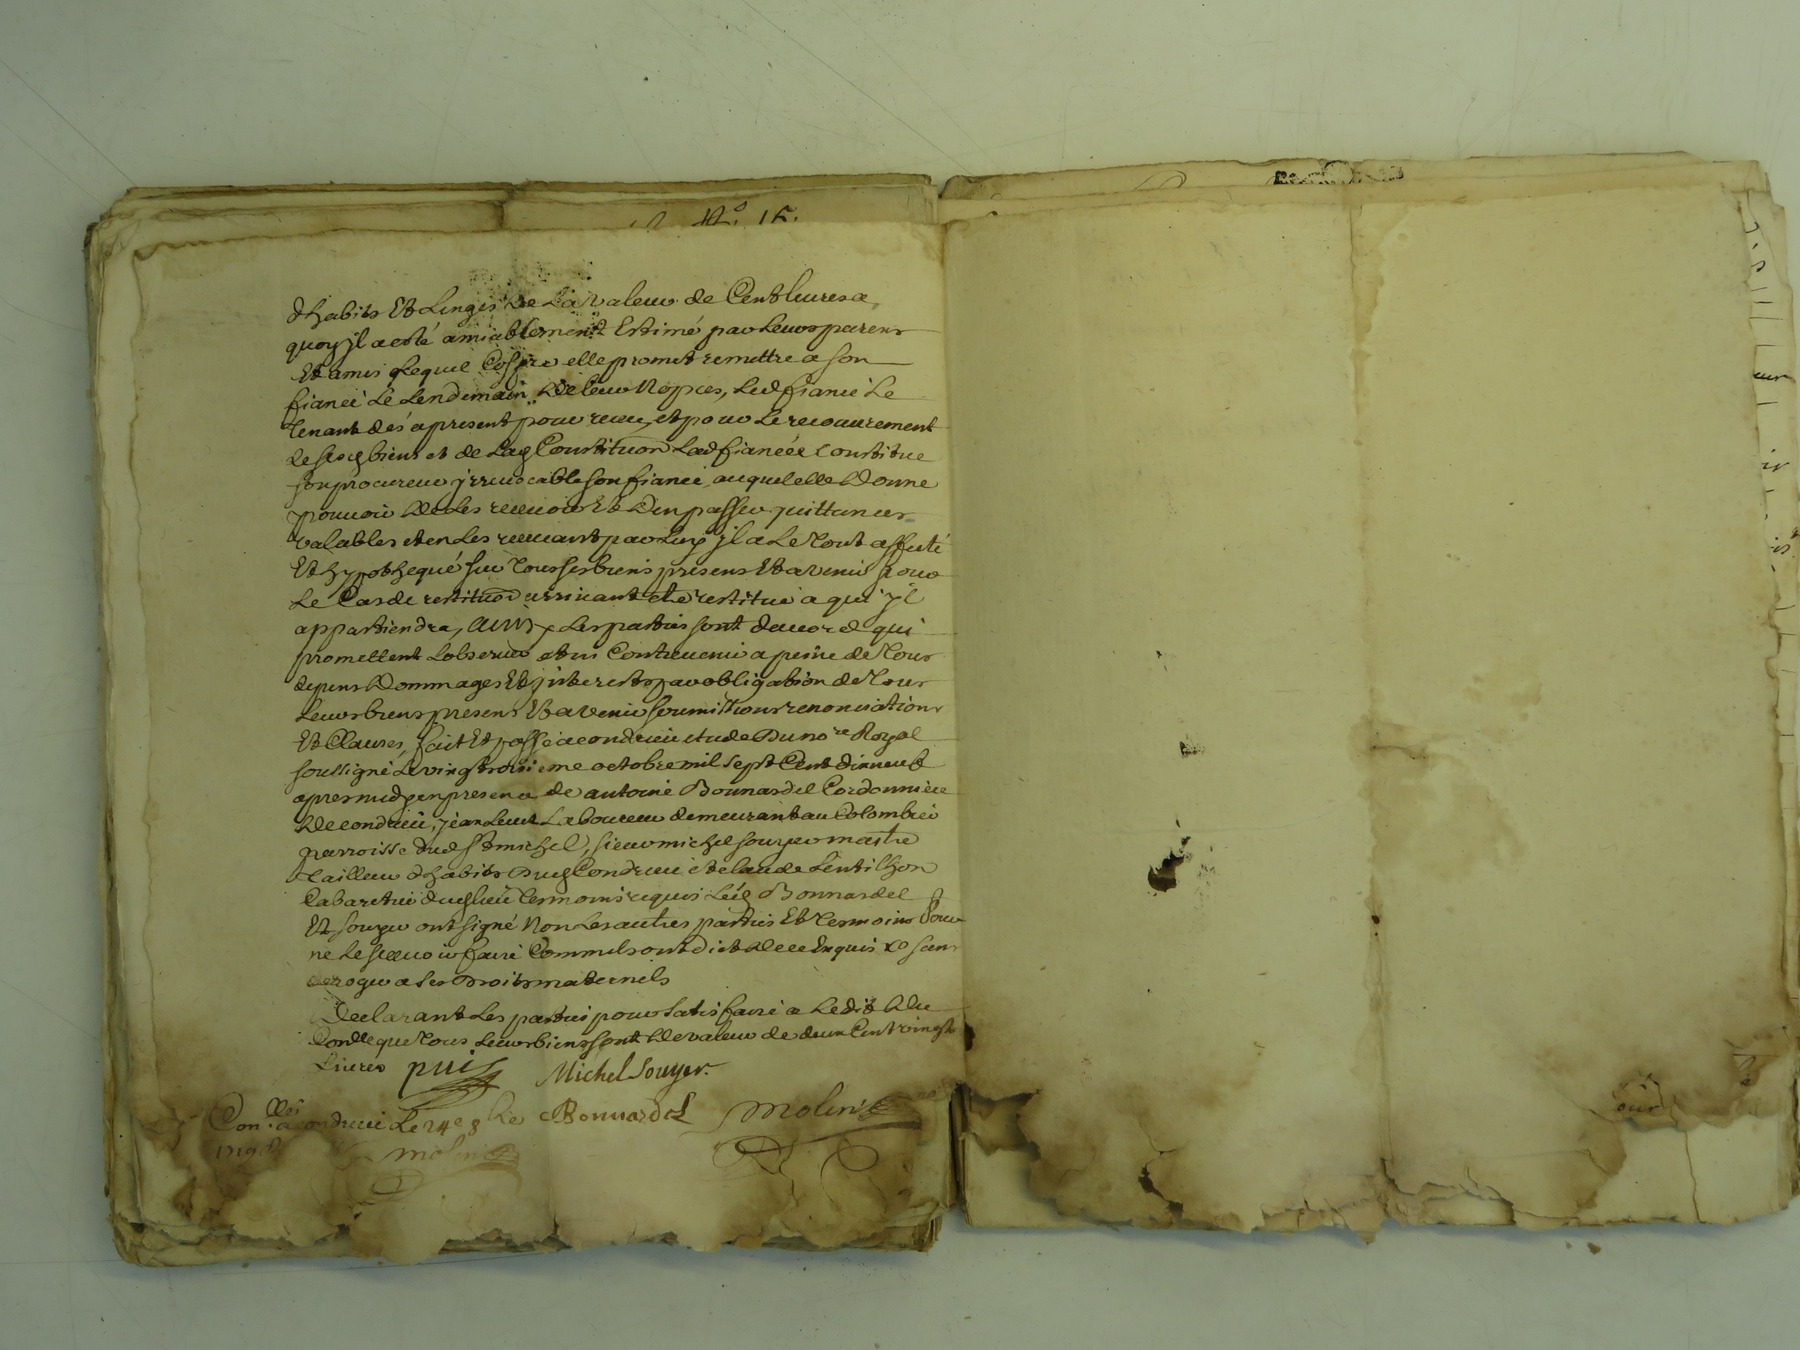 N.º 15.
dhabits Et Linges De La valeur de Cent livres a
quoy jl a esté amiablement Estimé par Leurs parens
Et amis Lequel Coffre elle promet remettre a son
fiancé Le Lendemain De leur Nopces, Led fiancé Le
Tenant dés apresent pour receu, et pour Le recouurement
desd biens et de Lad Constituon Lad fiancée constitue
son procureur jrreuocable son fiancé auquel elle Donne
pouuoir De Les receuoir Et D'en passer quittances
valables et en Les receuant par Luy jl a Le Tout affecté
Et hypothequé sur Tous ses biens presens Et avenir pour
Le Cas de restituon arriuant etre restitué a qui jl
appartiendra, Ainsy Les parties sont d'acord qui
promettent L'obseruer et ny Contreuenir a peine de Tous
depens Dommages Et jnterests par obligation de Tous
Leurs biens presens Et avenir soumissions renonciations
Et Clauses, fait Et passé a condrieu etude Du no.re Royal
soussigné Le vingt troisieme octobre mil sept Cent dixneuf
apres midy en presence de antoine Bonnardel Cordonnier
De condrieu, jean Laboureur demeurant au Colombier
parroisse dud St michel, sieur michel souyer maitre
Tailleur dhabits Dud Condrieu et claude Lentilhon
Cabaretier dud lieu Temoins requis Led Bonnardel
Et souyer ont signé Non Les autres parties Et Temoins Pour
ne Le sçauoir faire Comm'ils ont dit De ce Enquis sans
deroger a ses Droits maternels
Declarant Les parties pour satisfaire a Ledit Du
Conlle que Tous Leurs biens sont De valeur de deux Cent vingt
Livres puis Michel Souyer.
Con.lles a condrieu Le 24e 8bre Bonnardel Molin
1719
molin
our